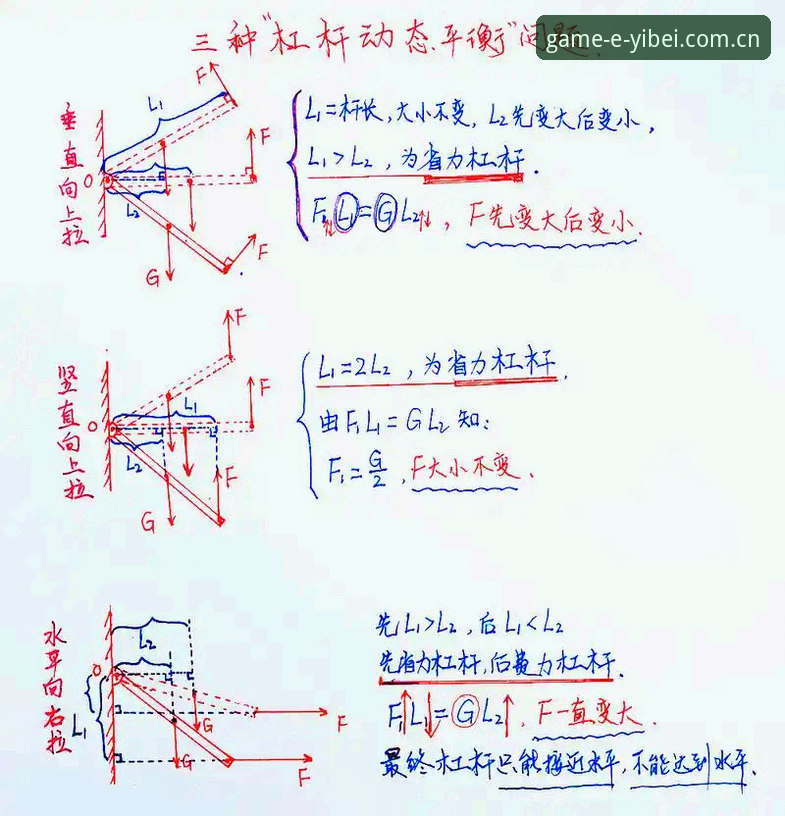 三种"杠杆动态平衡"问题
game-e-yibei.com.cn
垂直向上拉
L₁
F
F
O
L₂
F
G
L₁=杆长,大小不变,L₂先变大后变小,
L₁>L₂,为省力杠杆.
F₁↑↓L₁=GL₂↑↓,F先变大后变小.
竖直向上拉
F
F
L₁
O
L₂
F
G
L₁=2L₂,为省力杠杆.
由F₁L₁=GL₂知:
F₁=G/2,F大小不变.
水平向右拉
L₂
O
L₁
G
F
G
F
先L₁>L₂,后L₁<L₂
先省力杠杆,后费力杠杆.
F₁↑L₁↓=GL₂↑,F一直变大.
最终杠杆只能接近水平,不能达到水平.